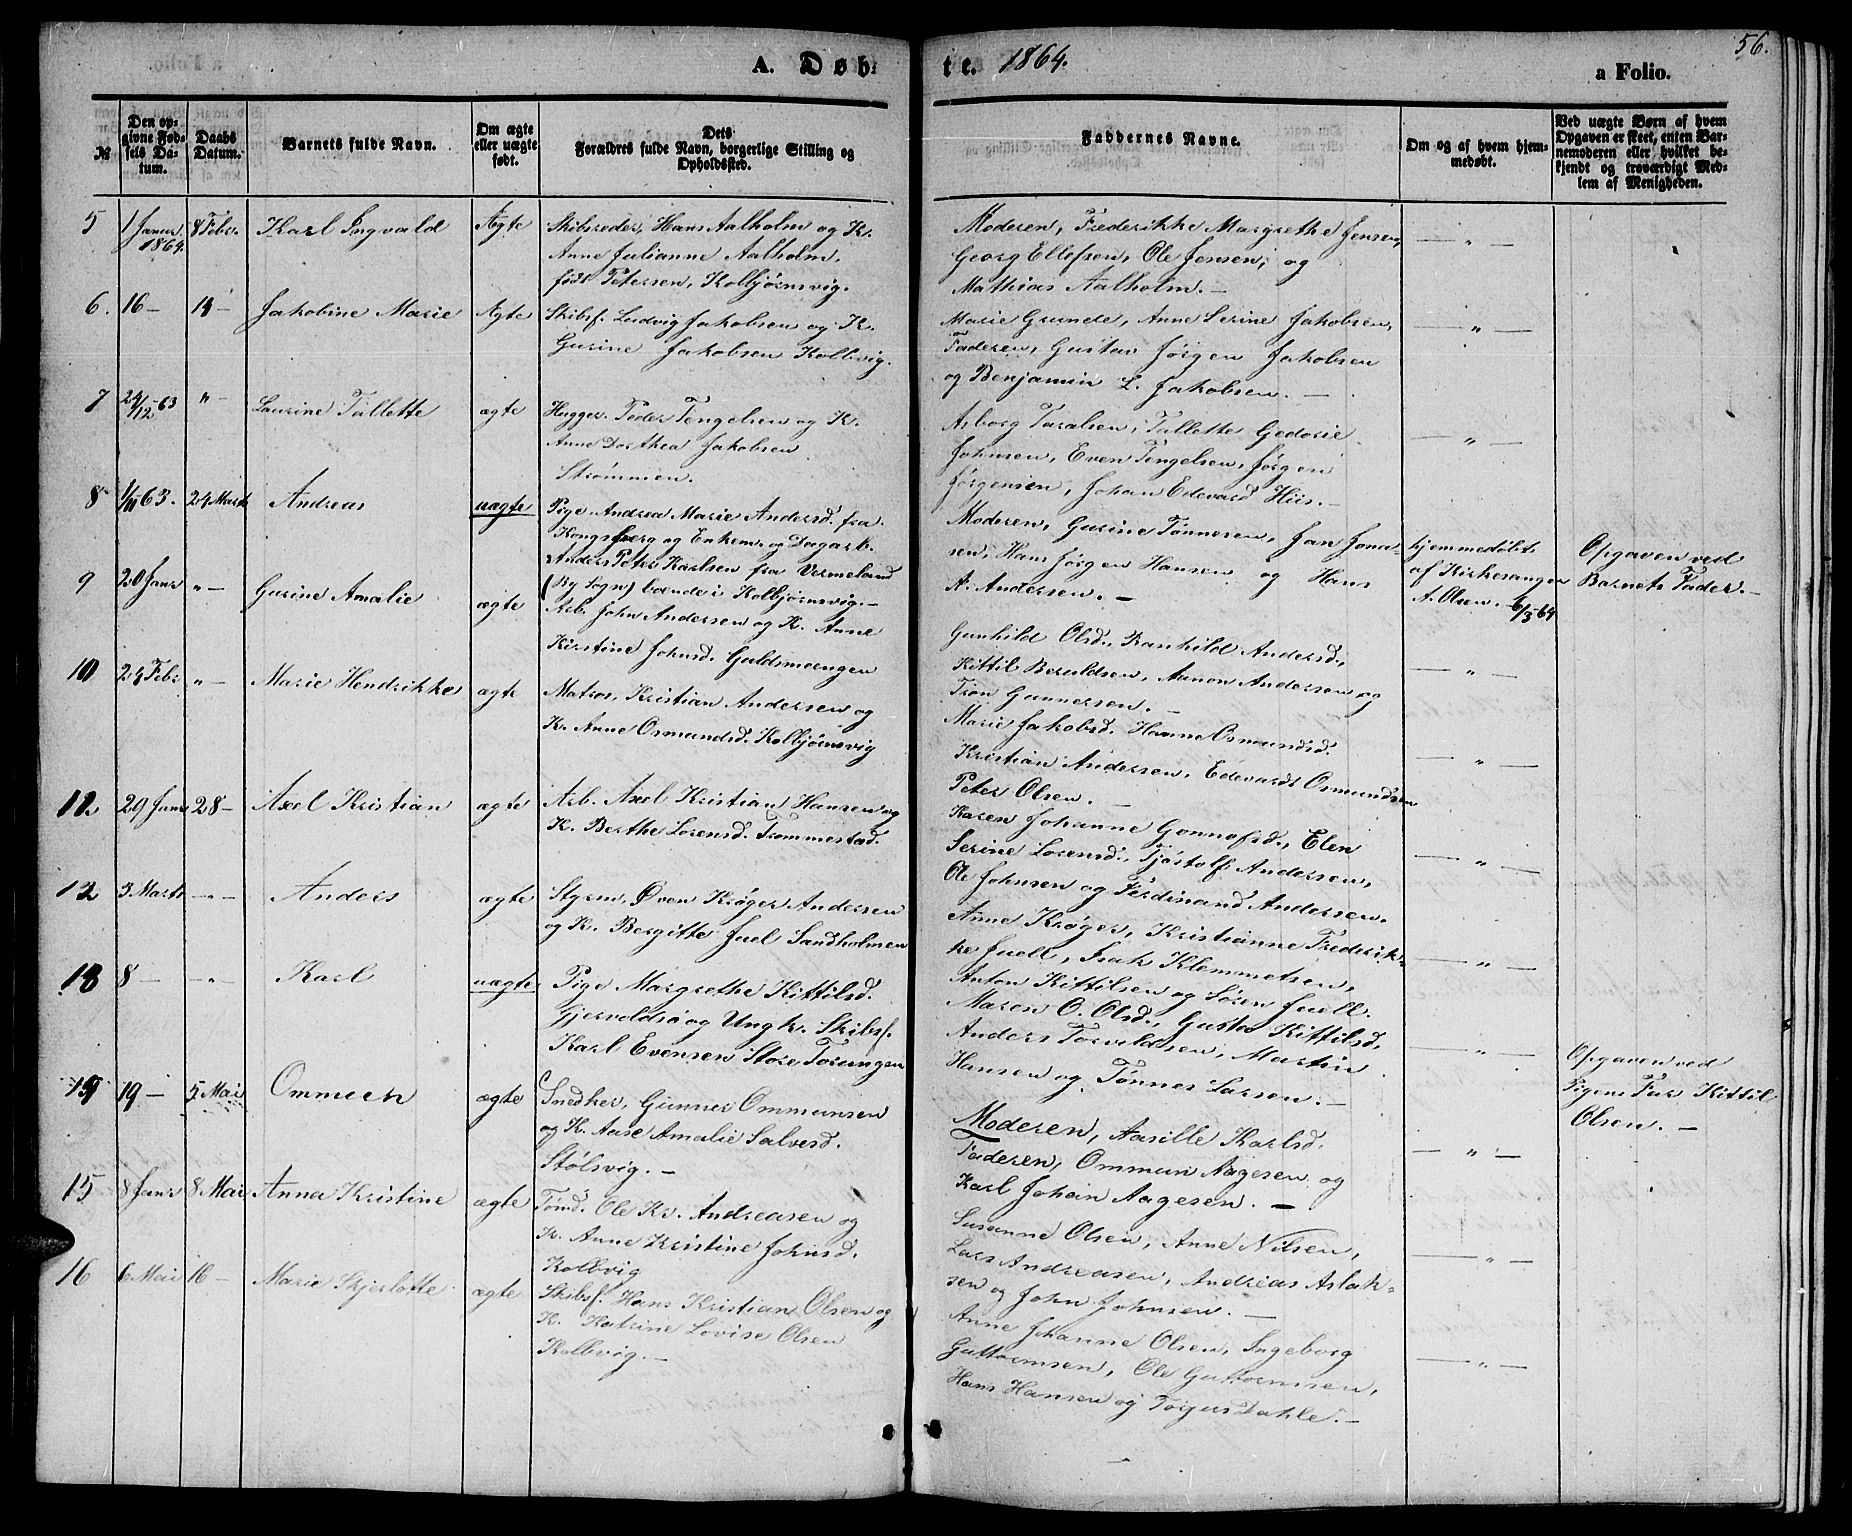 A. Døb-
te. 1864.
56.
a Folio.
№
Den op-
givne Fød-
sels Da-
tum.
Daabs
Datum.
Barnets fulde Navn.
Om ægte
eller uægte
født.
Dets
Forældres fulde Navn, borgerlige Stilling og
Opholdssted.
Faddernes Navne.
Om og af hvem hjem-
medøbt.
Ved uægte Børn af hvem
Opgaven er skeet, enten Bar-
nemoderen eller hvilket be-
kjendt og troværdigt Med-
lem af Menigheden.
5 1 Januar 1864. 8 Febr. Karl Ingvald Ægte
Skibsreder, Hans Aalholm og K.
Anne Julianne Aalholm.
født Petersen, Kolbjørnsvig.
Moderen, Frederikke Margrethe Jensen,
Georg Ellefsen, Ole Jensen, og
Mathias Aalholm. —
— „ —
6. 16 — 14 — Jakobine Marie Ægte
Skibsf. Ludvig Jakobsen og K.
Gurine Jakobsen Kolbvig.
Marie Grunde, Anne Serine Jakobsen,
Faderen, Gustav Jörgen Jakobsen
og Benjamin L. Jakobsen. —
— „ —
7 24/12-63 „ — Laurine Tallette ægte
Hugger. Peder Tengelsen og K.
Anne Dorthea Jakobsen
Strømmen.
Asborg Taralsen, Tallette Gedorie
Johnsen, Even Tengelsen, Jörgen
Jörgensen, Johan Edevard Hiis. —
— „ —
8 1/11 63. 24 Marts Andreas uægte
Pige Andrea Marie Andersd. fra
Kongsberg og Enkem. og Dagarb.
Anders Peter Karlsen fra Vermeland
(By Sogn) boende i Kolbjørnsvig. —
Moderen, Gurine Tønnesen, Jan Jona-
sen, Hans Jörgen Hansen og Hans
A. Andersen. —
hjemmedøbt
af Kirkesanger
A. Olsen. 6/3-64
Opgaven ved
Barnets Fader. —
9 20 Janr „ — Gurine Amalie ægte
Arb. John Andersen og K. Anne
Kirstine Johnsd. Guldsmængen
Gunhild Olsd., Ranhild Andersd.,
Kittil Beruldsen, Aanon Andersen og
Tron Gunnersen. —
— „ —
10 24 Febr „ — Marie Hendrikke ægte
Matros, Kristian Andersen og
K. Anne Osmundsd. Kolbjørnsvig
Marie Jakobsd. Hanne Osmundsd.
Kristian Andersen, Edevardt Osmundsen
Peter Olsen. —
— „ —
11. 29 Janr 28 — Axel Kristian ægte
Arb. Axel Kristian Hansen og
K. Berthe Lorensd. Trommestad.
Karen Johanne Gonnofsd., Elen
Serine Lorensd., Tjöstolf Andersen,
Ole Johnsen og Ferdinand Andersen.
— „ —
12 3 Marts — „ — Anders ægte
Styrm. Öven Krøger Andersen
og K. Bergitte Juel Sandholmen
Anne Krøger, Kristianne Frederik-
ke Juell, Isak Klemmetsen,
Anton Kittilsen og Sören Juell.
— „ —
13 8 — — „ — Karl uægte
Pige Margrethe Kittilsd.
Gjervoldsö og Ungk. Skibsf.
Karl Evensen Store Torungen
Maren O. Olsd., Gusta Kittilsd,
Anders Torvildsen, Martin
Hansen og Tønnes Larsen. —
— „ —
Opgaven ved
Pigens Far Kittil
Olsen. —
14 19 — 5 Mai Ommeen ægte
Snedker, Gunner Ommunsen
og K. Aase Amalie Salvesd.
Stölsvig. —
Moderen, Aasille Karlsd.
Faderen, Ommun Aagesen og
Karl Johan Aagesen. —
— „ —
15 8 Janr 8 Mai Anna Kristine ægte
Tömd. Ole Kr. Andreasen og
K. Anne Kristine Johnsd.
Kolbvig
Susanne Olsen, Anne Nilsen,
Lars Andreasen, Andreas Aslak-
sen og John Johnsen. —
— „ —
16 6 Mai 16 — Marie Skjerlotte ægte
Skibsf. Hans Kristian Olsen og
K. Katrine Lovise Olsen
Kolbvig. —
Anne Johanne Olsen, Ingeborg
Guttormsen, Ole Guttormsen,
Hans Hansen og Torjus Dahle. —
— „ —